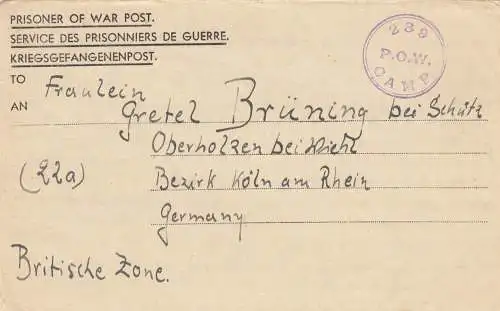 PRISONER OF WAR POST.
SERVICE DES PRISONNIERS DE GUERRE.
KRIEGSGEFANGENENPOST.
288
P.O.W.
CAMP
TO
AN
Fraulein
Gretel Brüning bei Schütz
Oberholzen bei Wiehl
(22a)
Bezirk Köln am Rhein
Germany
Britische Zone.